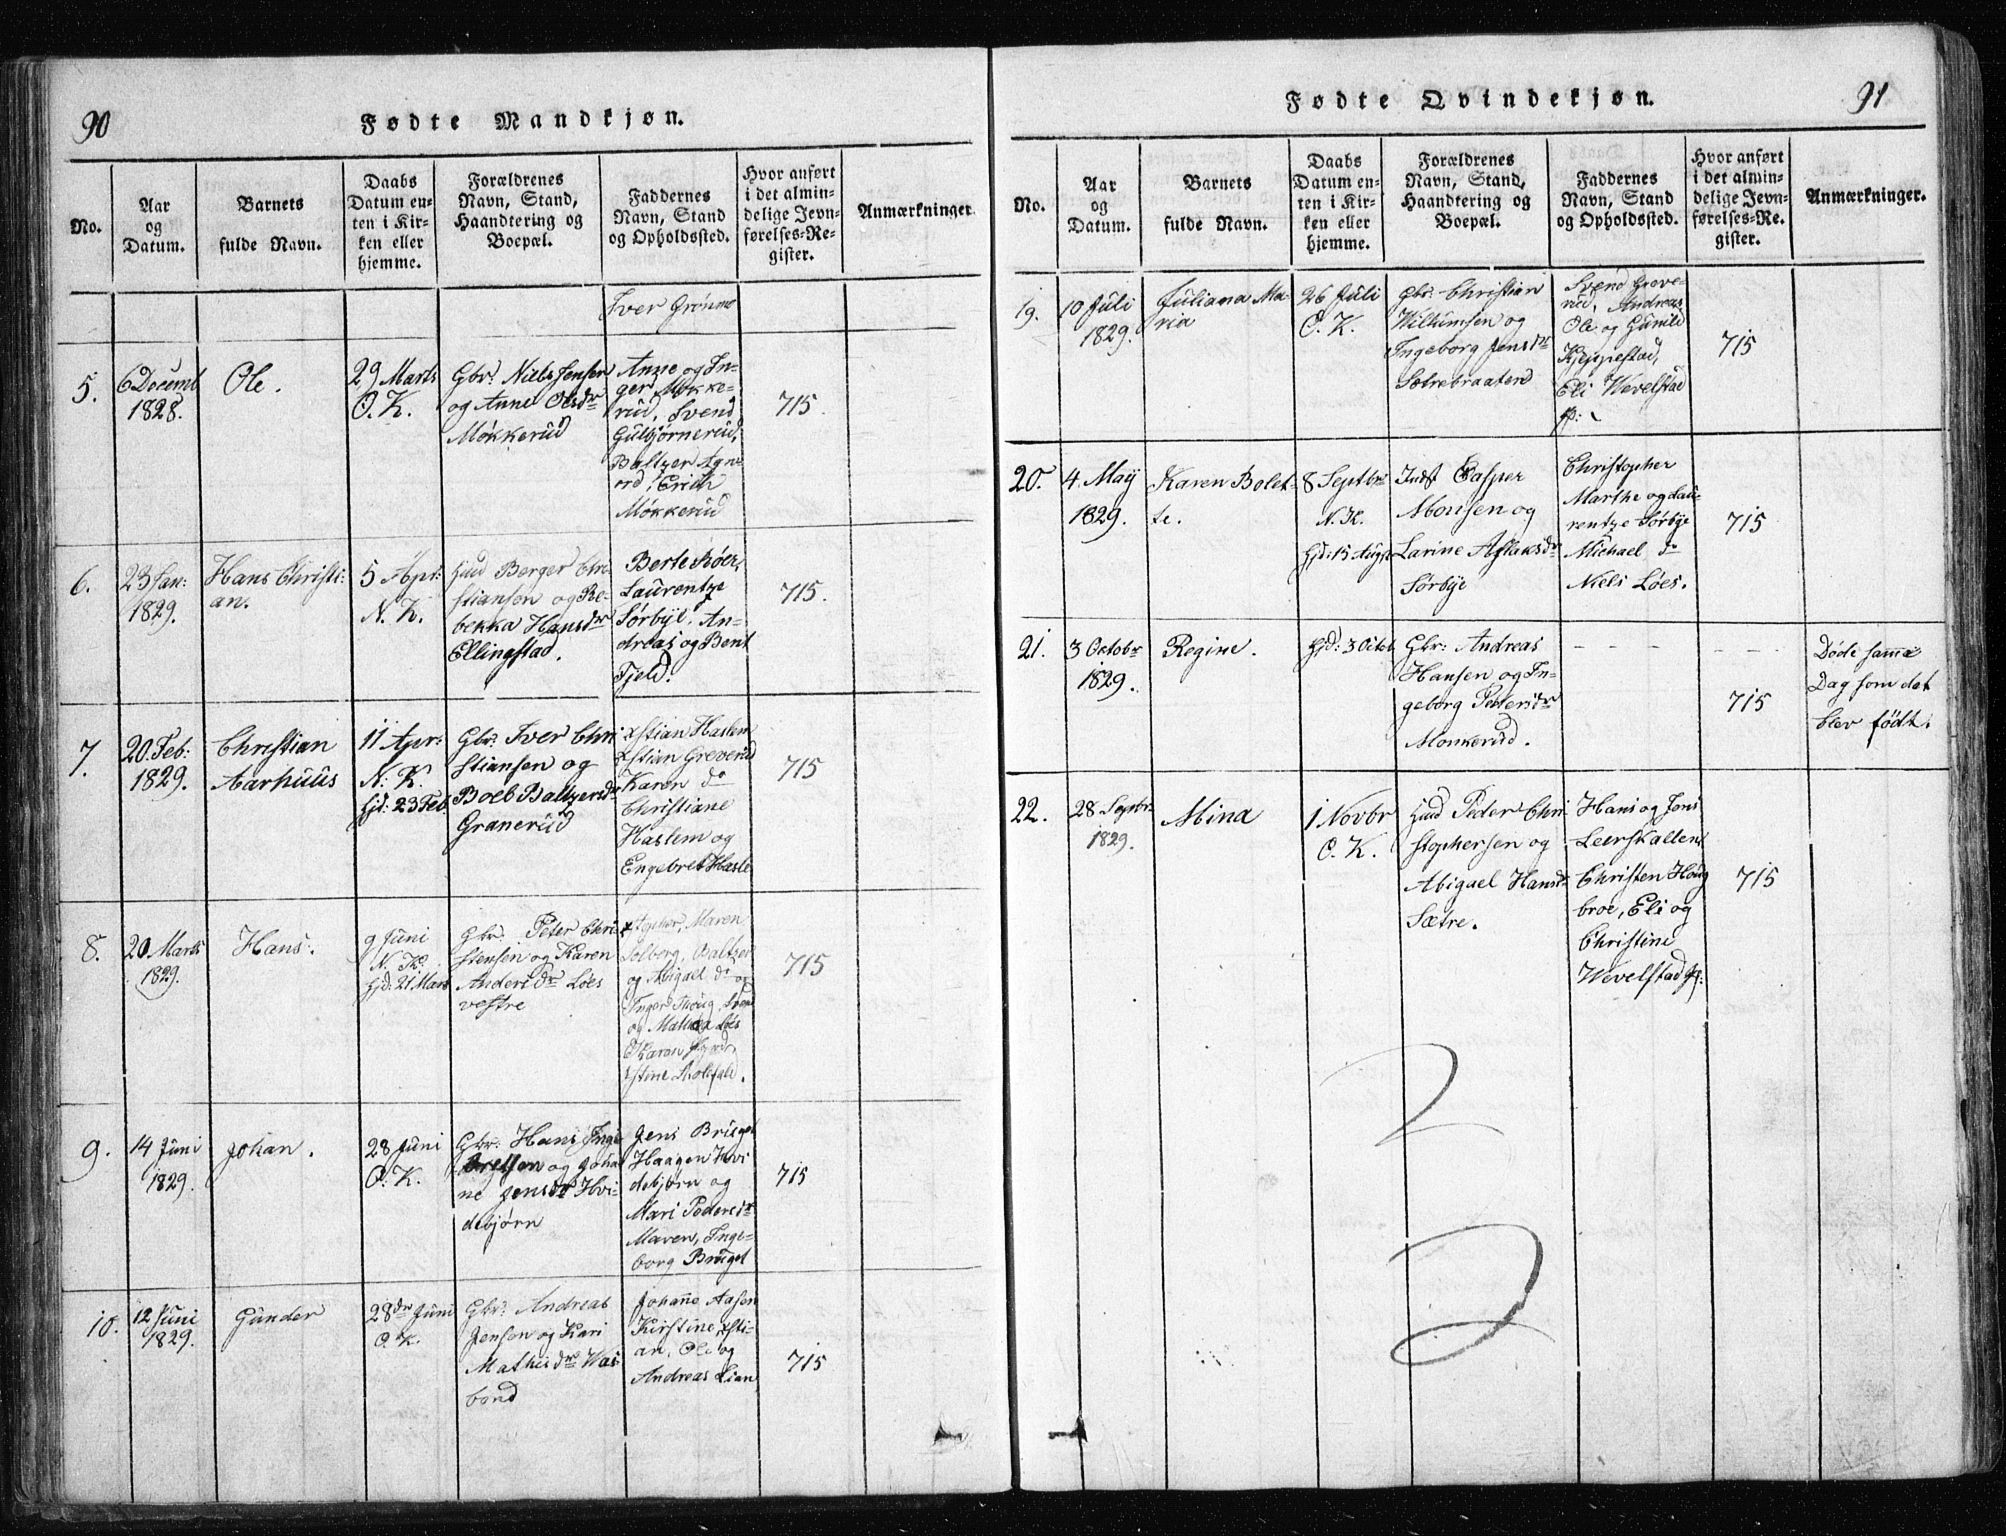 90
Fødte Mandkjøn.
No.
Aar
og
Datum.
Barnets
fulde Navn.
Daabs
Datum en-
ten i Kir-
ken eller
hjemme.
Forældrenes
Navn, Stand,
Haandtering og
Boepæl.
Faddernes
Navn, Stand
og Opholdssted.
Hvor anført
i det almin-
delige Jevn-
førelses-Re-
gister.
Anmærkninger.
Iver Grönmo
5.
6 Decemb
1828.
Ole.
29 Marts
O. K.
Gbr: Niels Jensen
og Anne Olsdr
Møkkerud
Anne og In-
ger Møkke-
rud, Svend
Gulbjørnerud,
Baltzer Agne
rud, Erich
Møkkerud
715
6.
23 Jan:
1829.
Hans Christi-
an.
5 Apr:
N. K.
Huud Berger Chri-
stiansen og Re-
bekka Hansdr
Ellingstad.
Berte Skøer,
Laurentze
Sørbye, An-
dreas og Bent
Fjeld.
715.
7.
20 Feb:
1829.
Christian
Aarhuus
11 Apr:
N: K.
Hjd: 23 Feb.
Gbr: Iver Chri
stiansen og
Boel Baltzersdr
Granerud
Xstian Haslem
Xstian Greverud
Karen do
Christiane
Haslem og
Engebret Hasle
715
8.
20 Marts
1829.
Hans.
9 Juni
N. K.
Hjd: 21 Mars
Gbr: Peter Chri
stensen og Karen
Andersdr Löes
vestre
Xstopher, Maren
Solberg, Baltzer
og Abigael do og
Inger
og Mathea Löes
Karen
Xstine
715
9.
14 Juni
1829.
Johan.
28 Juni
O. K.
Gbr: Hans Inge
bretsen og Joha
ne Jensdr Hvi-
debjørn
Jens Bruget
Haagen Hvi
debjørn og
Mari Pedersdr
Maren, Inge-
borg Bruget
715
10.
12 Juni
1829.
Gunder
28de Juni
O. K.
Gbr: Andreas
Jensen og Kari
Mathisdr Was
bond
Johanne Aasen
Kirstine, Xsti-
an, Ole og
Andreas Lian
715
91
Fødte Qvindekjøn.
No.
Aar
og
Datum.
Barnets
fulde Navn.
Daabs
Datum en-
ten i Kir-
ken eller
hjemme.
Forældrenes
Navn, Stand,
Haandtering og
Boepæl.
Faddernes
Navn, Stand
og Opholdssted.
Hvor anført
i det almin-
delige Jevn-
førelses-Re-
gister.
Anmærkninger.
19.
10 Juli
1829.
Juliana Ma-
ria
26 Juli
O. K.
Gbr: Christian
Willumsen og
Ingeborg Jensdr
Sætrebraaten
Svend Greve-
rud, Andreas
Ole og Gunild
Kjeppestad,
Eli Wevelstad
715
20.
4 May
1829.
Karen Bolet-
te.
8 Septbr
N. K.
Hjd: 15 Augst
Indst Casper
Monsen og
Larine Aslaksdr
Sørbye
Christopher
Marthe og Lau-
rentze Sørbye
Michael do
Niels Löes.
715
21.
3 Octobr
1829.
Regine.
Hjd: 3 Octob
Gbr: Andreas
Hansen og In-
geborg Pedersdr
Monkerud.
715
Döde samme
Dag som det
blev födt.
22.
28 Septbr
1829.
Mina
1 Novbr
O. K.
Huud Peder Chri
stophersen og
Abigael Hansdr
Sætre.
Hans og Jens
Leerskallen
Christen Houg
broe, Eli og
Christine
Wevelstad
715